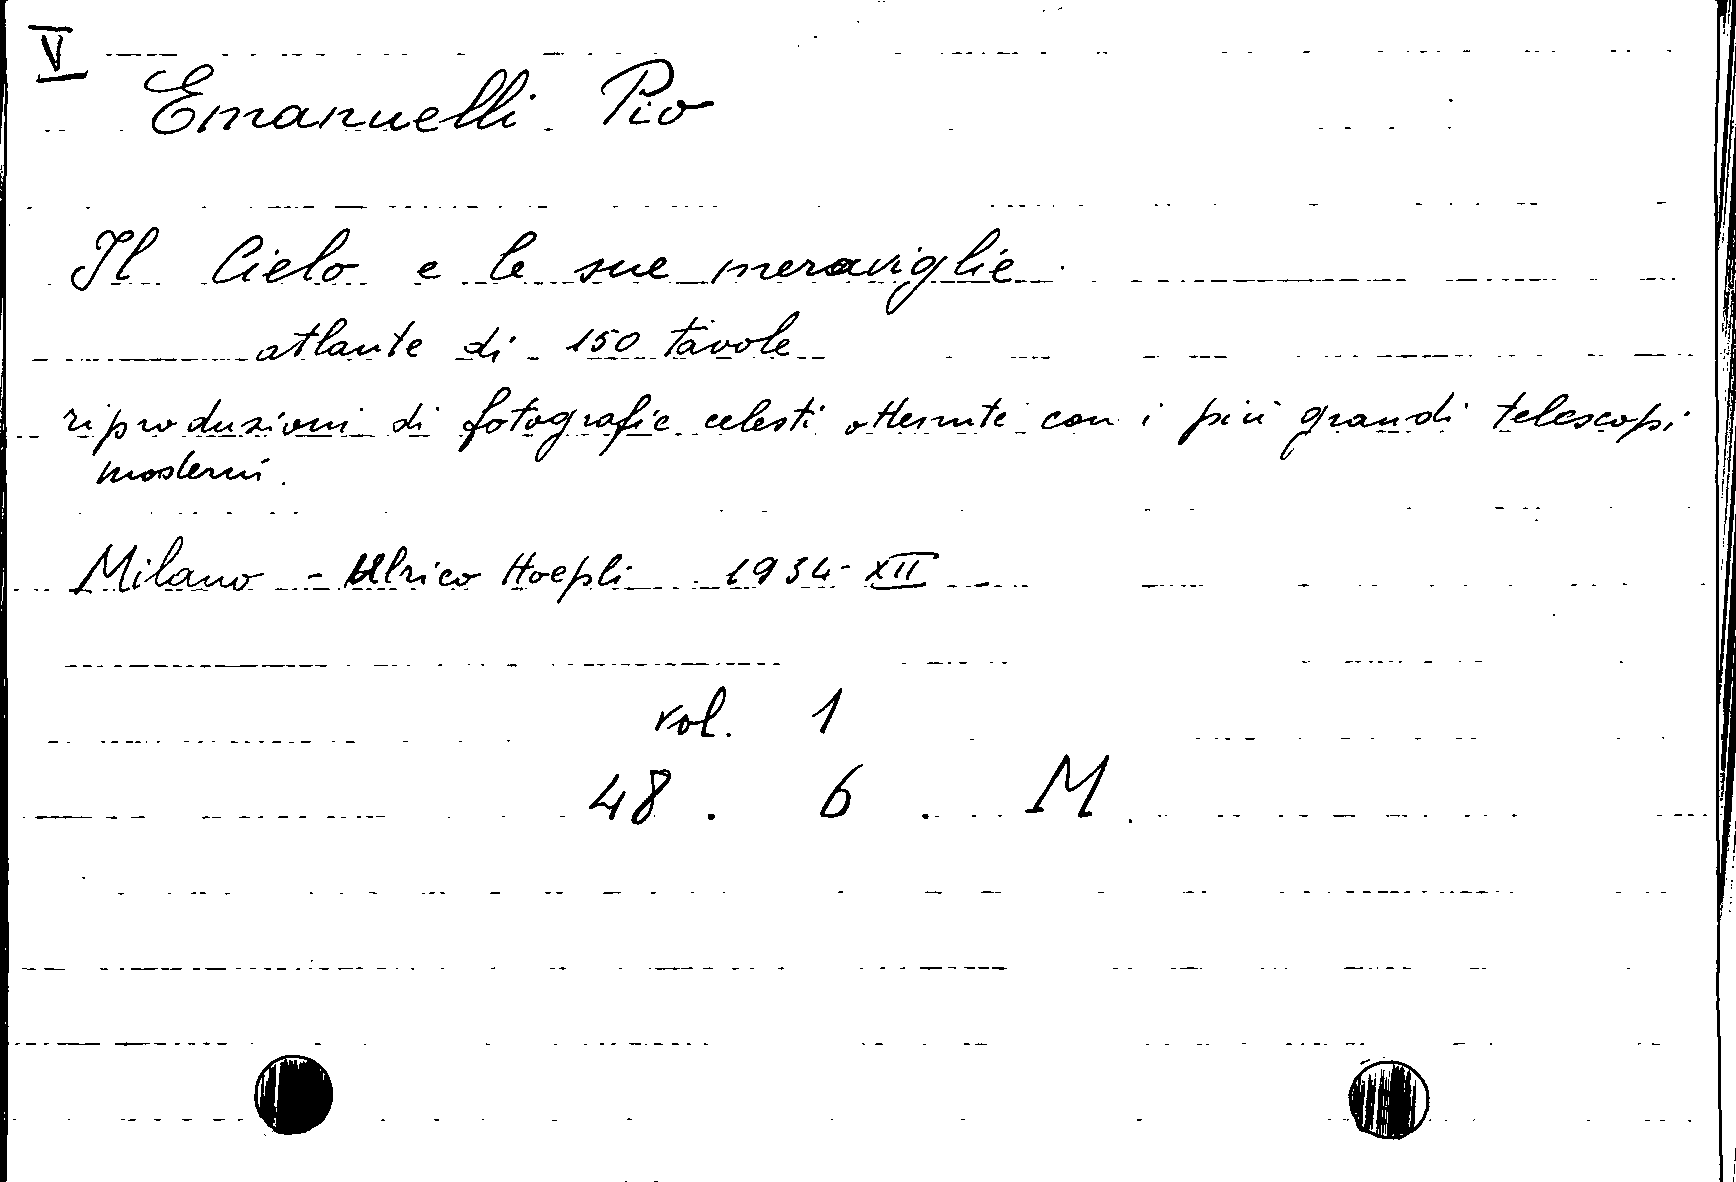 V
Emanuelli Pio
Il Cielo e le sue meraviglie
atlante di 150 tavole
riproduzioni di fotografie celesti ottenute con i più grandi telescopi
moderni.
Milano - Ulrico Hoepli 1934-XII
vol. 1
48 . 6 . M.